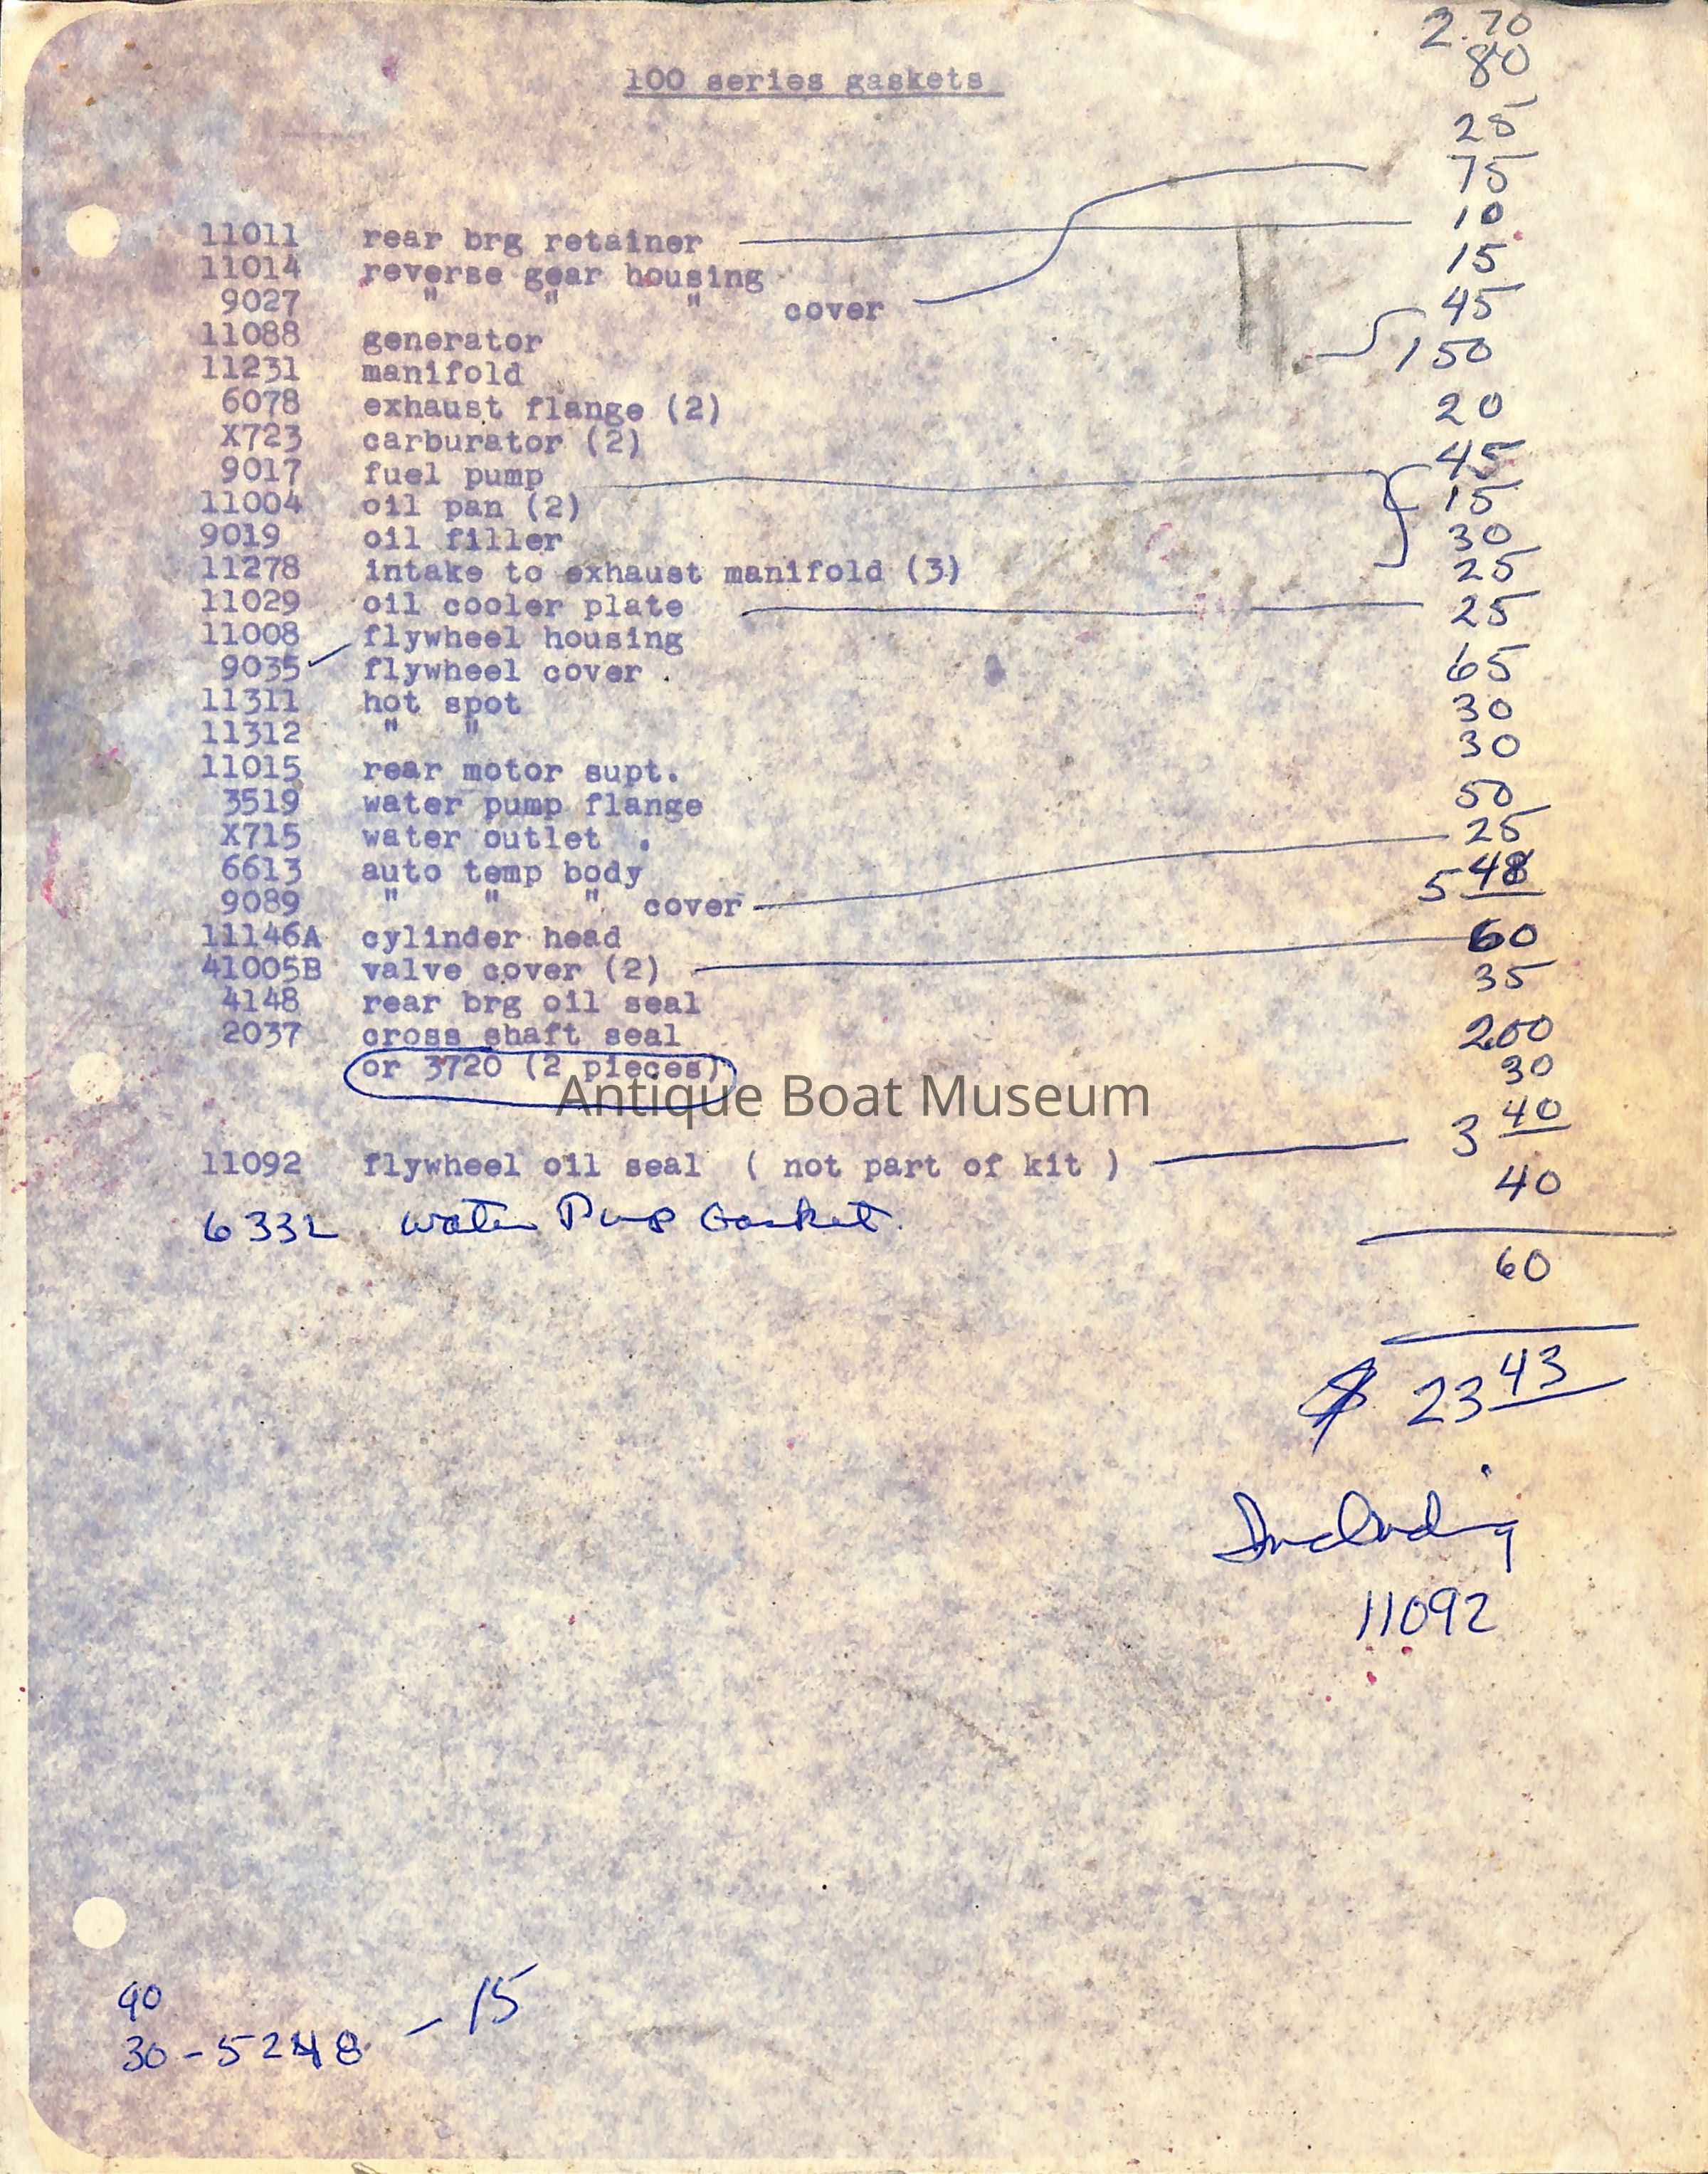 2.70
80
100 series gaskets
25
75
11011 rear brg retainer 10
11014 reverse gear housing 15
9027 " " " cover 45
11088 generator 1 50
11231 manifold
6078 exhaust flange (2) 20
X723 carburator (2) 45
9017 fuel pump 15
11004 oil pan (2) 30
9019 oil filler 25
11278 intake to exhaust manifold (3)
11029 oil cooler plate 25
11008 flywheel housing
9035 flywheel cover 65
11311 hot spot 30
11312 " " 30
11015 rear motor supt.
3519 water pump flange 50
X715 water outlet 25
6613 auto temp body 5 48
9089 " " " cover
11146A cylinder head 60
41005B valve cover (2) 35
4148 rear brg oil seal
2037 cross shaft seal 200
or 3720 (2 pieces) 30
Antique Boat Museum
3 40
11092 flywheel oil seal ( not part of kit ) 40
6332 Water Pump Gasket
60
$ 23 43
Including
11092
90
30-5248 - 15